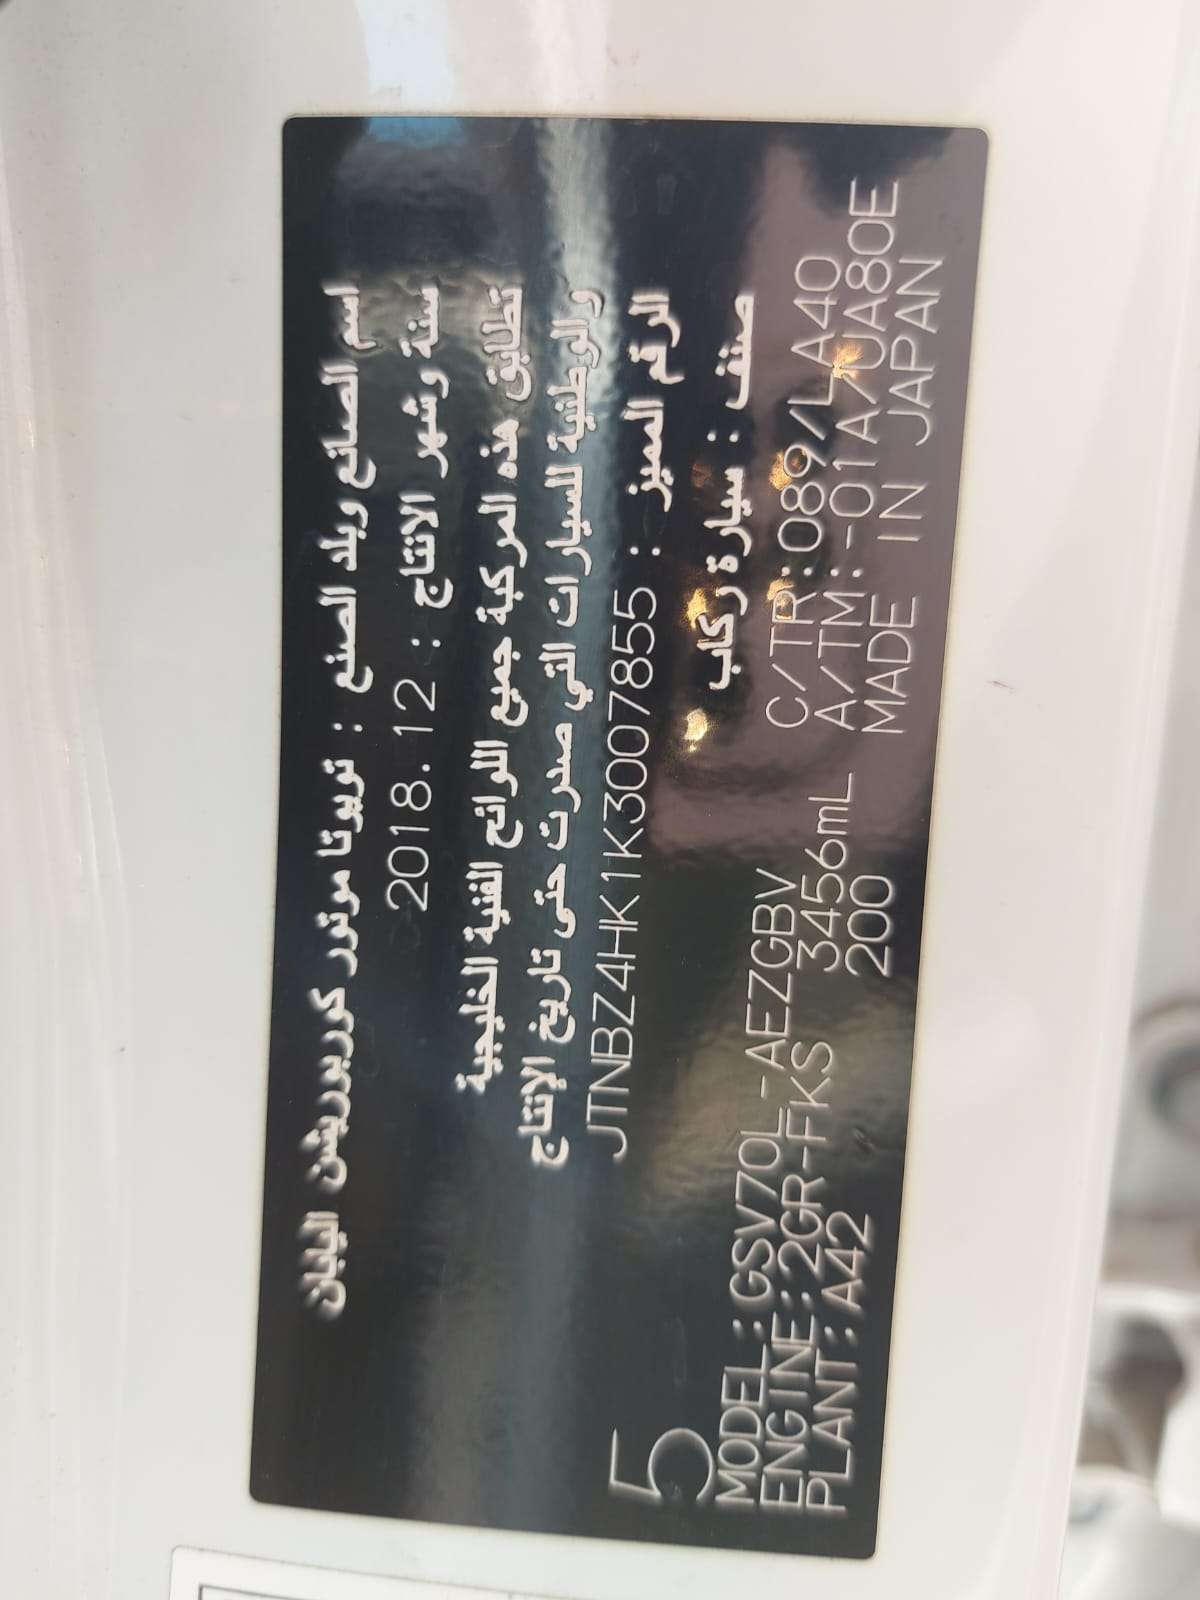 اسم الصانع وبلد الصنع : تويوتا موتور كوربوريشن اليابان
سنة وشهر الانتاج : 2018.12
تطابق هذه المركبة جميع اللوائح الفنية الخليجية
والوطنية للسيارات التي صدرت حتى تاريخ الإنتاج
الرقم المميز : JTNBZ4HK1K3007855
صنف : سيارة ركاب
5
MODEL:GSV70L-AEZGBV C/TR:089/LA40
ENGINE:2GR-FKS 3456mL A/TM:-01A/UA80E
PLANT:A42 200 MADE IN JAPAN